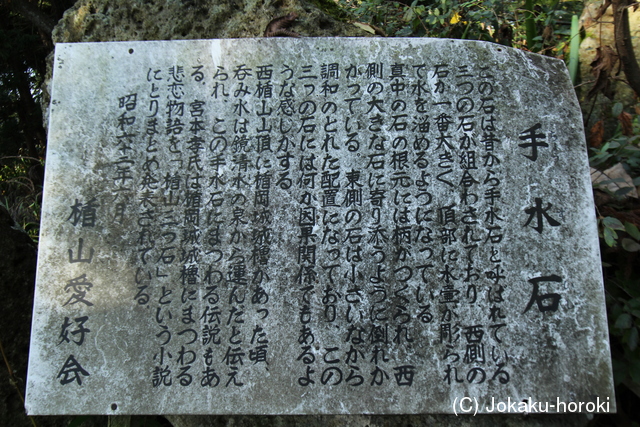 手水石
この石は昔から手水石と呼ばれている
三つの石が組合わされており、西側の
石が一番大きく、頂部に水壷が彫られ
て水を溜めるようになっている。
真中の石の根元には柄がつくられ、西
側の大きな石に寄り添うように倒れか
かっている。東側の石は小さいながら
調和のとれた配置になっており、この
三つの石には何か因果関係でもあるよ
うな感じがする。
西楯山山頂に楯岡城城櫓があった頃、
呑み水は鏡清水の泉から運んだと伝え
られ、この手水石にまつわる伝説もあ
る。宮本孝氏は楯岡城城櫓にまつわる
悲恋物語を「楯山三つ石」という小説
にとりまとめ発表されている。
昭和六十二年 月
楯山愛好会
(C) Jokaku-horoki